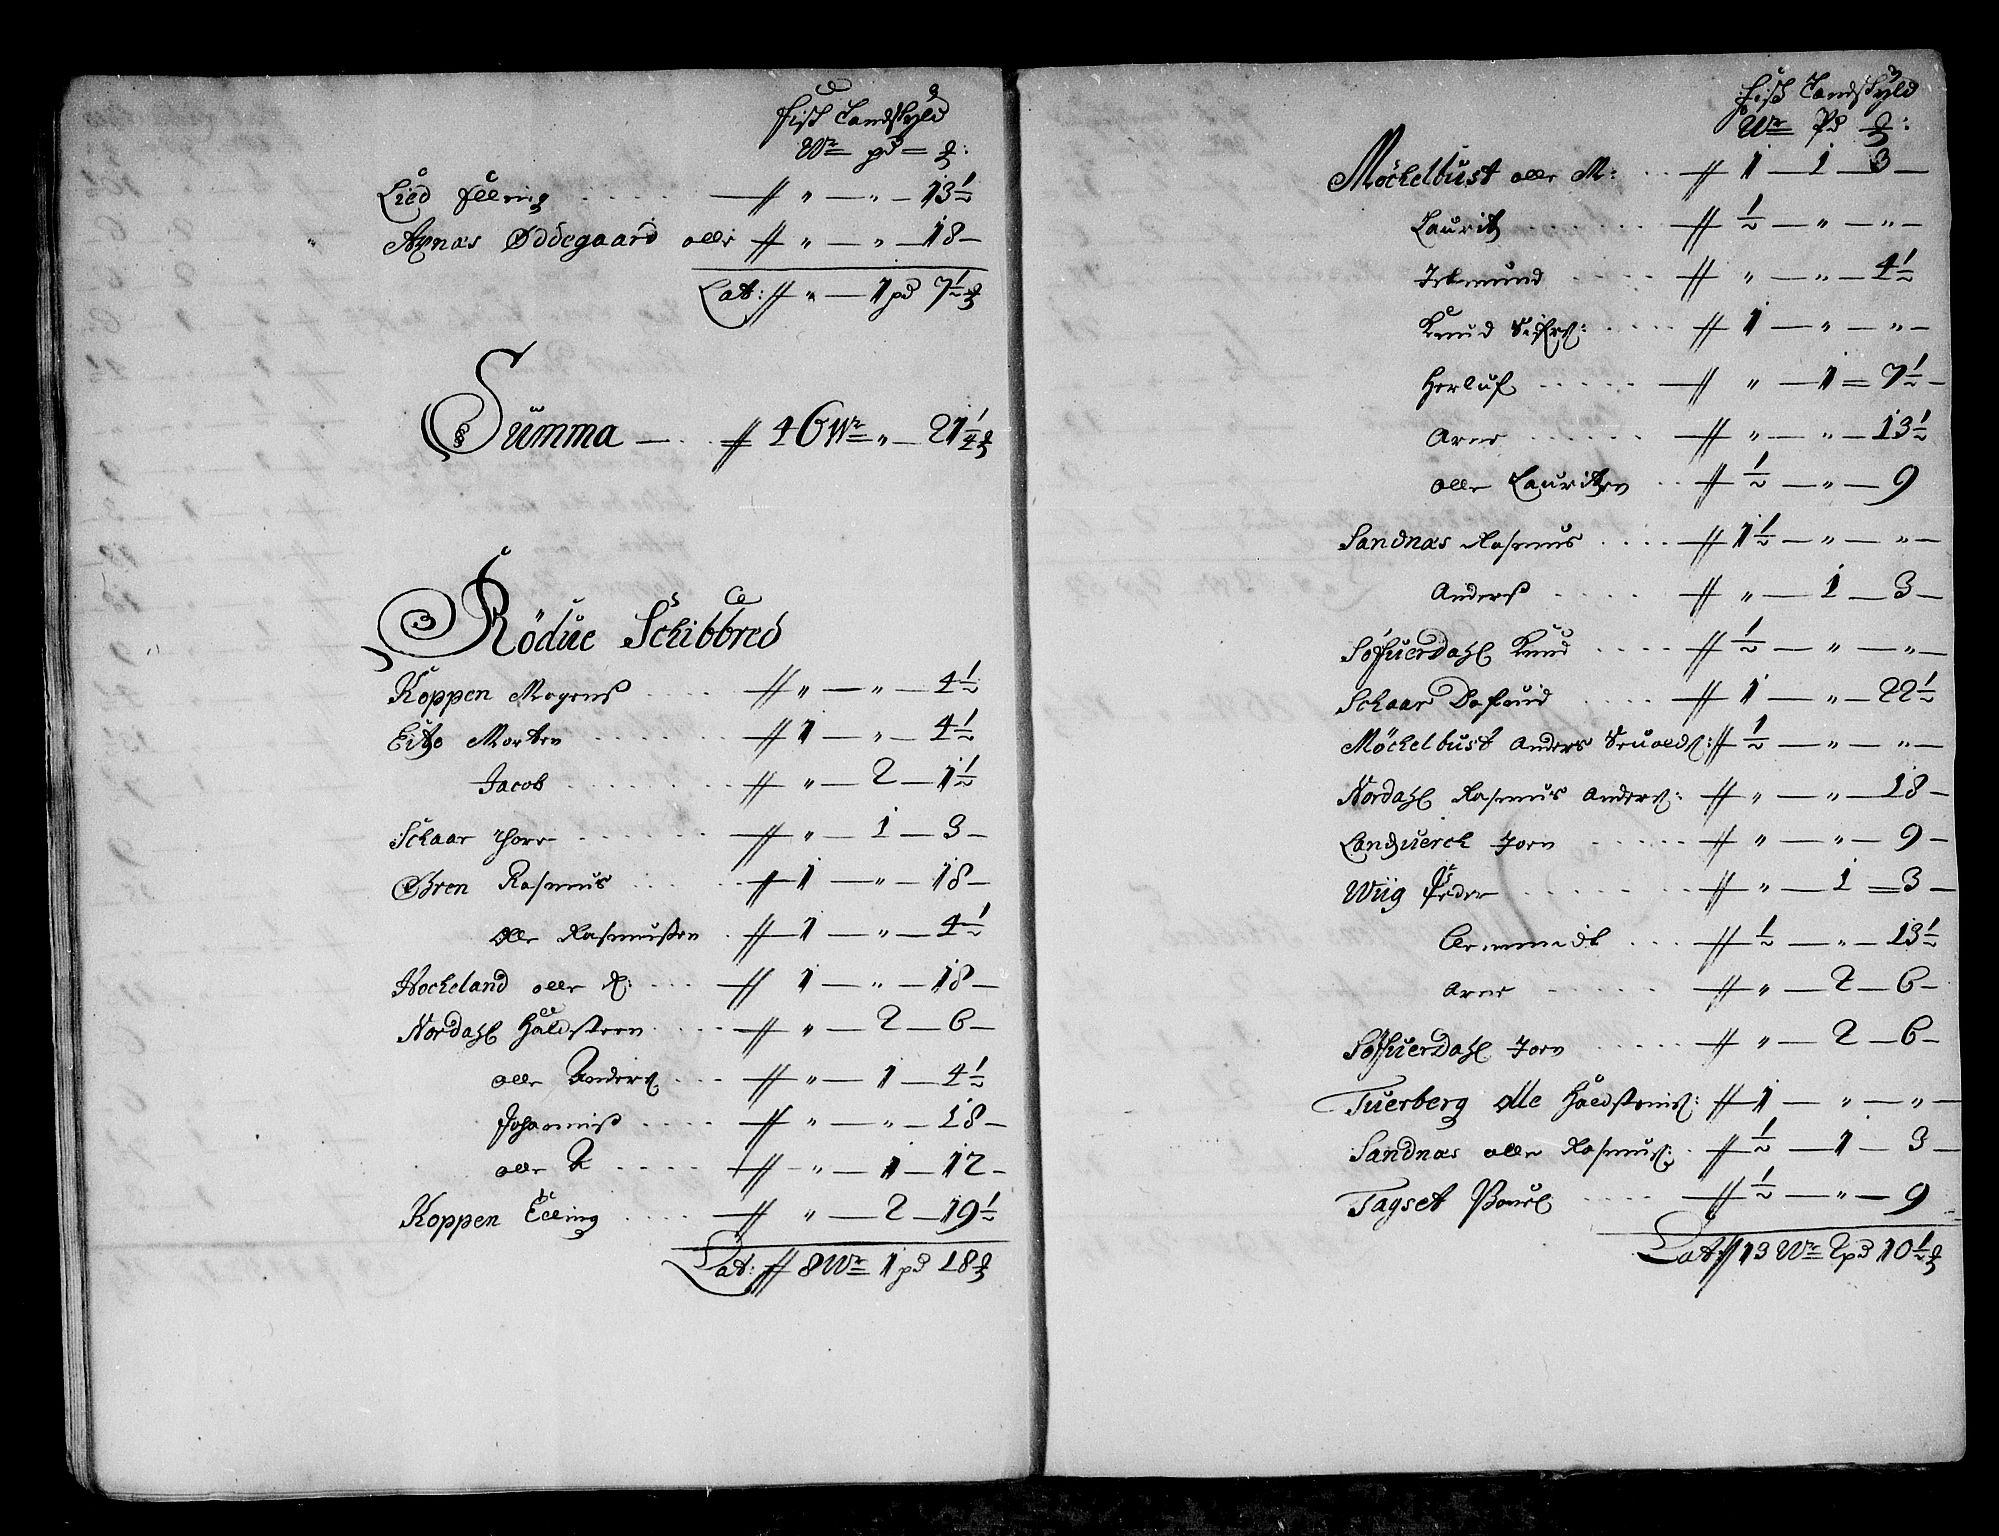 Fisk Landskyld
Wr pd ℔:
Lied Elling ..... // " — " — 13½
Aynæs Ødegaard olle // " — " — 18 —
Lat: // " — 1 pd 7½ ℔
Summa — // 46 Wr " — 21¼ ℔
Rödue Schibbred
Koppen Mogens .... // " — " — 4½
Eitze Morten ...... // 1 — " — 4½
Jacob ....... // " — 2 — 1½
Schaar Thore ...... // " — 1 — 3 —
Øhren Rasmus ..... // 1 — " — 18 —
Olle Rasmussen . // 1 — " — 4½
Hockeland olle R: ... // 1 — " — 18 —
Nordahl Haldsteen .... // " — 2 — 6 —
olle Anders ... // " — 1 — 4½
Johannis .... // " — " — 18 —
olle A .... // " — 1 — 12 —
Koppen Elling .... // " — 2 — 19½
Lat: // 8 Wr 1 pd 18 ℔
Fisk Landskyld
Wr Pd ℔:
Möckelbust olle M: .. // 1 — 1 — 3 —
Laurit ...... // ½ — " — " —
..... // " — " — 4½
Knud Sifers: .... // 1 — " — " —
Herluf ..... // " — 1 = 7½ —
Arne ...... // " — " — 13½
olle Lauritzen .. // ½ — " — 9
Sandnæs Rasmus .... // 1½ — " — " —
Anders ..... // " — 1 — 3 —
Söffuerdahl Knud .... // ½ — " — " —
Schaar Dafind .... // 1 — " — 22½
Möckelbust Anders Siuolds: // ½ — " — " —
Nordahl Rasmus Anders: // " — " — 18 —
Languerck Jorn ..... // " — " — 9 —
Wiig Peder ....... // " — 1 = 3 —
... // ½ — " — 13½
Arne ...... // " — 2 — 6 —
Söffuerdahl Jorn ..... // " — 2 — 6 —
Tuerberg Olle Haldstenis: // 1 — " — " —
Sandnæs olle Rasmus: . // ½ — 1 — 3 —
Tagset Pouel .... // ½ — " — 9
Lat: // 13 Wr 2 pd 10½ ℔